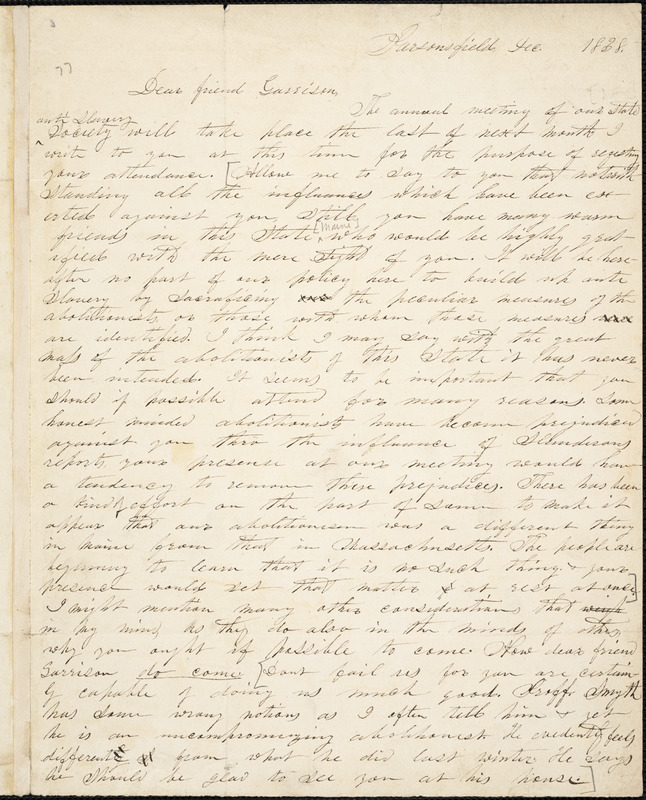 77
Parsonsfield Dec 1838.
Dear friend Garrison,
The annual meeting of our State
anti Slavery
Society will take place the last of next month I
write to you at this time for the purpose of
your attendance. [Allow me to say to you that notwith
standing all the influances which have been ex
erted against you, Still you have many warm
[Maine]
friends in this State who would be highly grat
ified with the mere Sight of you. It will be here-
after no part of our policy here to build up anti
Slavery by Sacraficing the peculiar measures of the
abolitionists or those with whom those measures
are identified. I think I may say with the great
mass of the abolitionists of this State it has never
been intended. It seems to be important that you
should if possible attend for many reasons. Some
honest minded abolitionists have become prejudiced
against you thro the influance of Slanderous
reports, your presense at our meeting would have
a tendency to remove these prejudices. There has been
a kind of effort on the part of some to make it
appear that our abolitionism was a different thing
in Maine from that in Massachusetts. The people are
beginning to learn that it is no such thing & your
presence would set that matter at rest at once]
I might mention many other considerations that
in my mind, as they do also in the minds of others,
why you ought if possible to come. Now dear friend
Garrison, do come. [Dont fail us for you are certain-
ly capable of doing us much good. Proff. Smyth
has some wrong notions as I often tell him & yet
he is an uncompromizing abolitionist he evidently feels
different from what he did last winter. He says
he should be glad to see you at his house.]